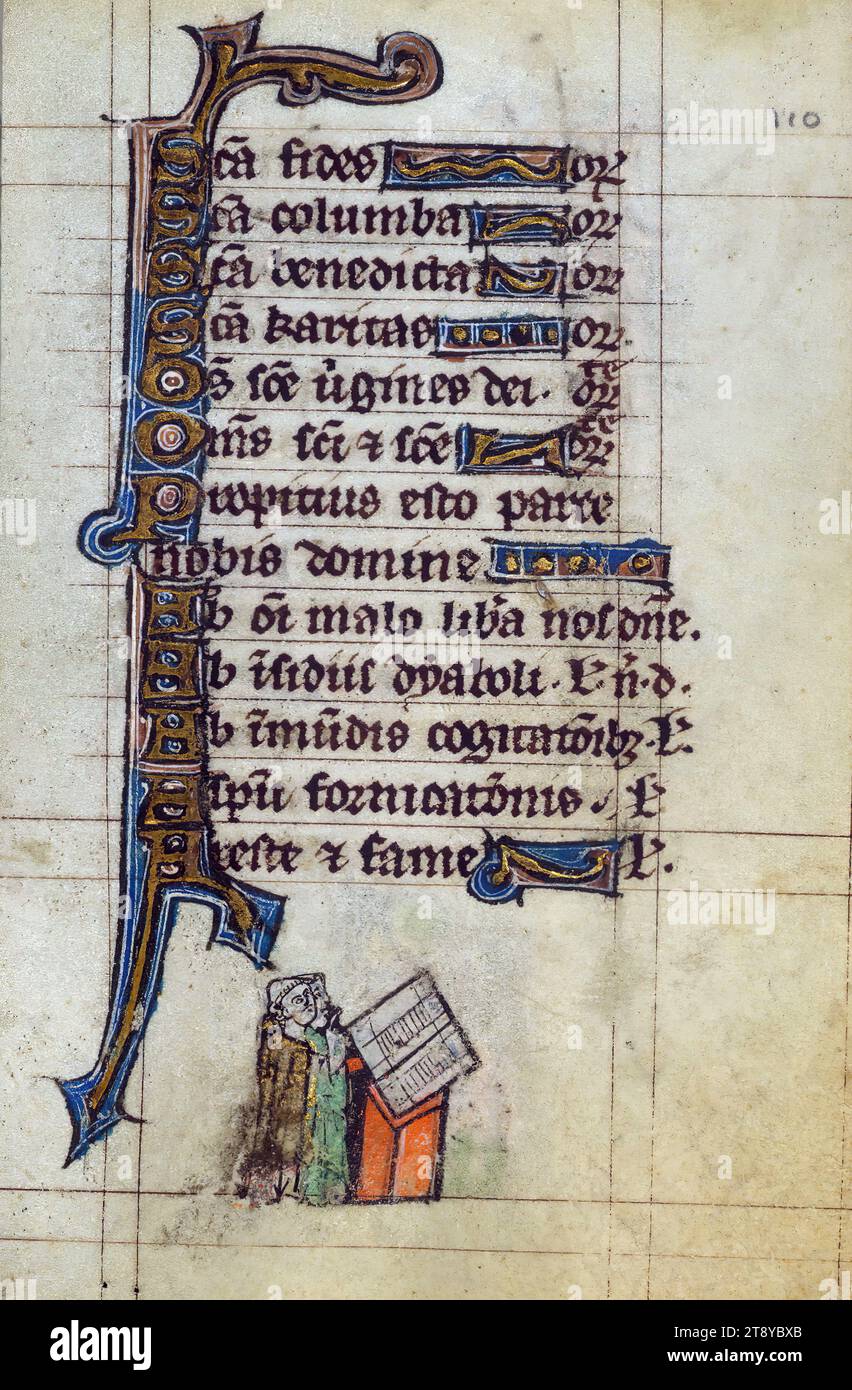 110
Sc̄a fides or̄
Sc̄a columba or̄
Sc̄a benedicta or̄
Sc̄a karitas or̄
Om̄s sc̄e v̓gines dei. or̄ te
Om̄s sc̄i ⁊ sc̄e or̄ te
Propicius esto parce
nobis domine
Ab om̄i malo lib̓a nos dn̄e.
Ab īsidiis dyaboli. ł n̄. d.
Ab īmūdis cogitatōibꝫ. ł.
A spū fornicatōnis. ł
A peste ⁊ fame ł.
alamy
Image ID: 2T8YBXB
www.alamy.com